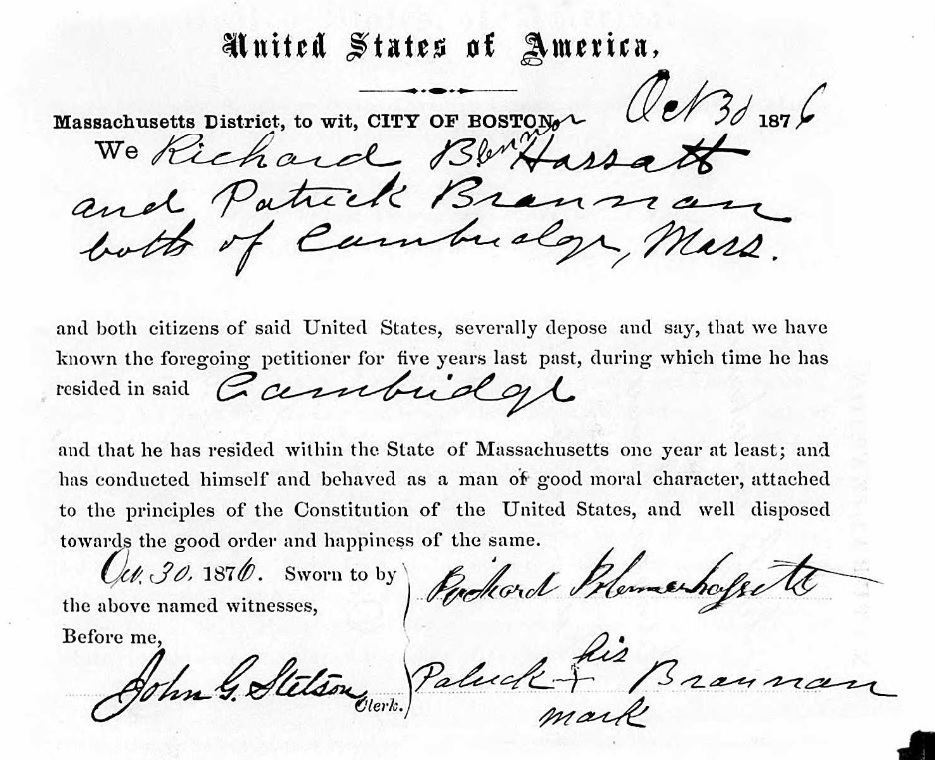 United States of America,
Massachusetts District, to wit, CITY OF BOSTON, Oct 30 1876
We Richard BlennerHassatt
and Patrick Brannan
both of Cambridge, Mass.
and both citizens of said United States, severally depose and say, that we have
known the foregoing petitioner for five years last past, during which time he has
resided in said Cambridge
and that he has resided within the State of Massachusetts one year at least; and
has conducted himself and behaved as a man of good moral character, attached
to the principles of the Constitution of the United States, and well disposed
towards the good order and happiness of the same.
Oct. 30. 1876. Sworn to by
the above named witnesses,
Before me,
John G. Stetson, Clerk.
Richard Blennerhassett
Patrick his + mark Brannan